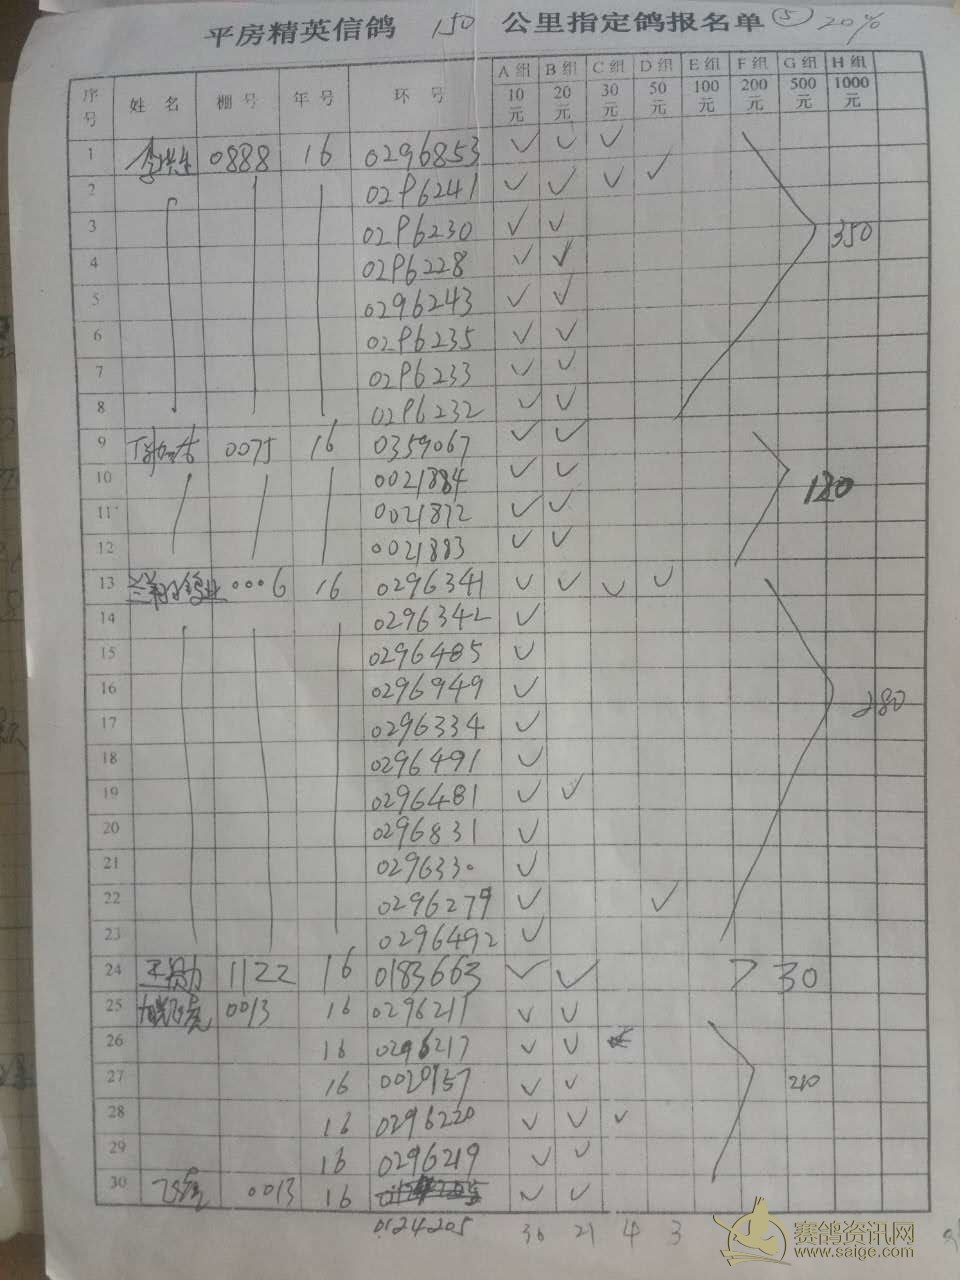 平房精英信鸽 150 公里指定鸽报名单 ⑤ 20%
序号 姓 名 棚 号 年 号 环 号 A组 10元 B组 20元 C组 30元 D组 50元 E组 100元 F组 200元 G组 500元 H组 1000元
1 0888 16 0296853 ✓ ✓ ✓
2 0296241 ✓ ✓ ✓ ✓
3 0296230 ✓ ✓ 350
4 0296228 ✓ ✓
5 0296243 ✓ ✓
6 0296235 ✓ ✓
7 0296233 ✓ ✓
8 0296232 ✓ ✓
9 0075 16 0359067 ✓ ✓
10 0021884 ✓ ✓ 120
11 0021872 ✓ ✓
12 0021883 ✓ ✓
13 0006 16 0296341 ✓ ✓ ✓ ✓
14 0296342 ✓
15 0296485 ✓
16 0296949 ✓ 280
17 0296334 ✓
18 0296491 ✓
19 0296481 ✓ ✓
20 0296831 ✓
21 0296330 ✓
22 0296279 ✓ ✓
23 0296492 ✓
24 1122 16 0183663 ✓ ✓ > 30
25 0013 16 0296211 ✓ ✓
26 16 0296217 ✓ ✓
27 16 0020957 ✓ ✓ 210
28 16 0296220 ✓ ✓ ✓
29 16 0296219 ✓ ✓
30 0013 16 ✓ ✓
0124205 30 21 4 3
赛鸽资讯网
www.saige.com